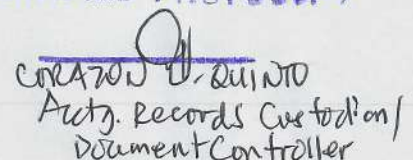 CORAZON J. QUINTO
Actg. Records Custodian/
Document Controller